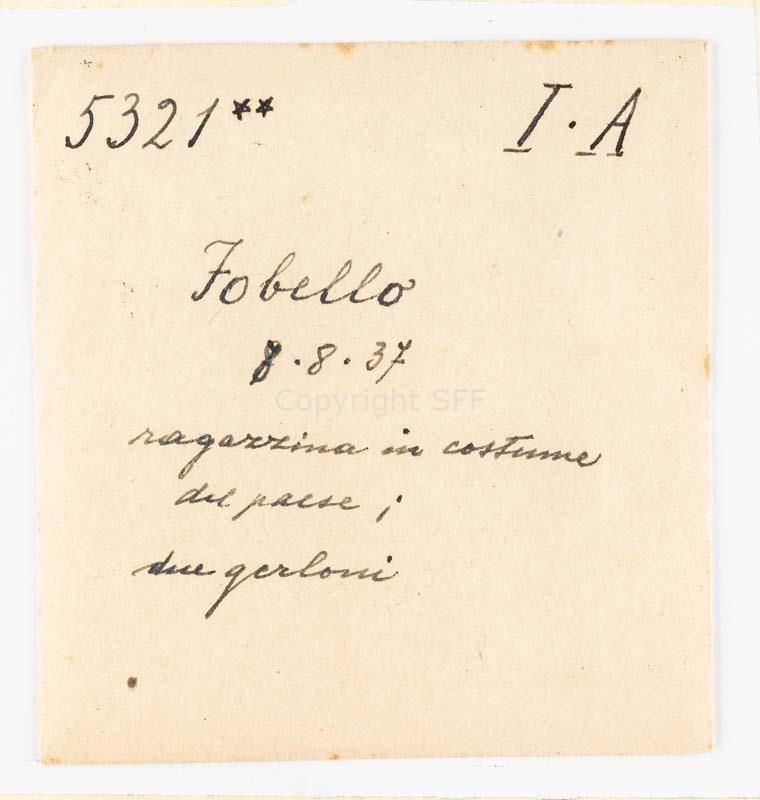 5321** I·A
Fobello
8.8.37
Copyright SFF
ragazzina in costume
del paese;
due gerloni